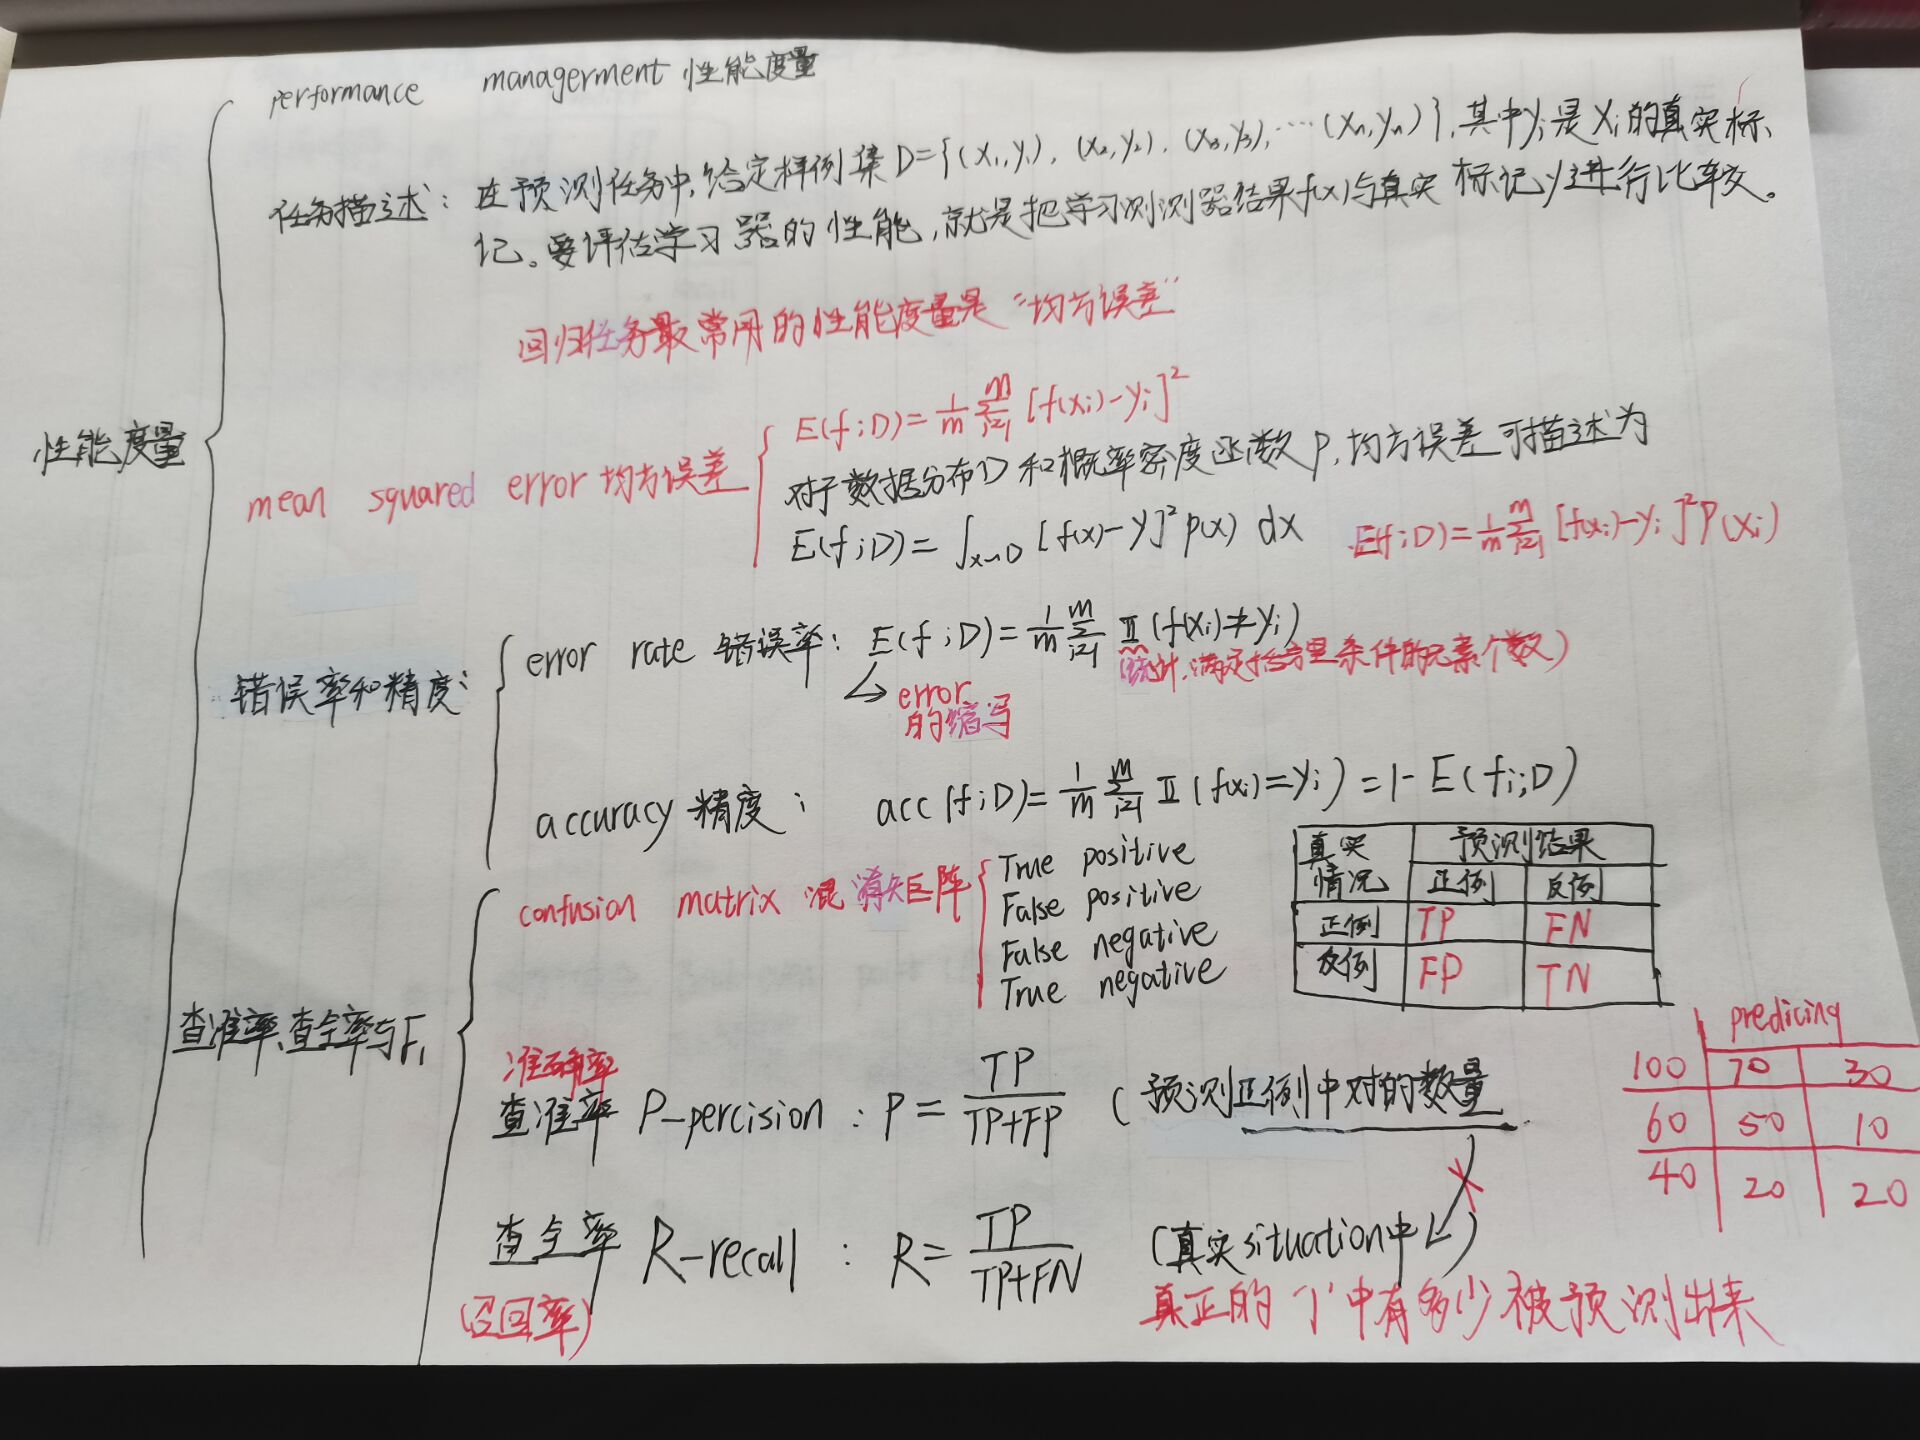 performance managerment 性能度量
任务描述：在预测任务中，给定样例集D={(x₁,y₁)，(x₂,y₂)，(x₃,y₃)，…(xₙ,yₙ)}，其中yᵢ是xᵢ的真实标
记。要评估学习器的性能，就是把学习测测器结果f(x)与真实标记y进行比较。
回归任务最常用的性能度量是“均方误差”
性能度量
mean squared error 均方误差
E(f;D)=1/m Σᵢ₌₁ᵐ [f(xᵢ)-yᵢ]²
对于数据分布D和概率密度函数P，均方误差可描述为
E(f;D)=∫x~D [f(x)-y]²p(x) dx E(f;D)=1/m Σᵢ₌₁ᵐ [f(xᵢ)-yᵢ]²P(xᵢ)
错误率和精度：
error rate 错误率：E(f;D)=1/m Σᵢ₌₁ᵐ Ⅱ(f(xᵢ)≠yᵢ)
(统计，满足括号里条件的元素个数)
error
的缩写
accuracy 精度： acc(f;D)=1/m Σᵢ₌₁ᵐ Ⅱ(f(xᵢ)=yᵢ)=1-E(fi;D)
查准率、查全率与F₁
confusion matrix 混淆矩阵
True positive
False positive
False negative
True negative
真实情况 预测结果
正例 反例
正例 TP FN
反例 FP TN
predicing
100 70 30
60 50 10
40 20 20
准确率
查准率 P-percision：P=TP/(TP+FP) (预测正例中对的数量
查全率 R-recall：R=TP/(TP+FN) (真实situation中)
(召回率) 真正的“1”中有多少被预测出来